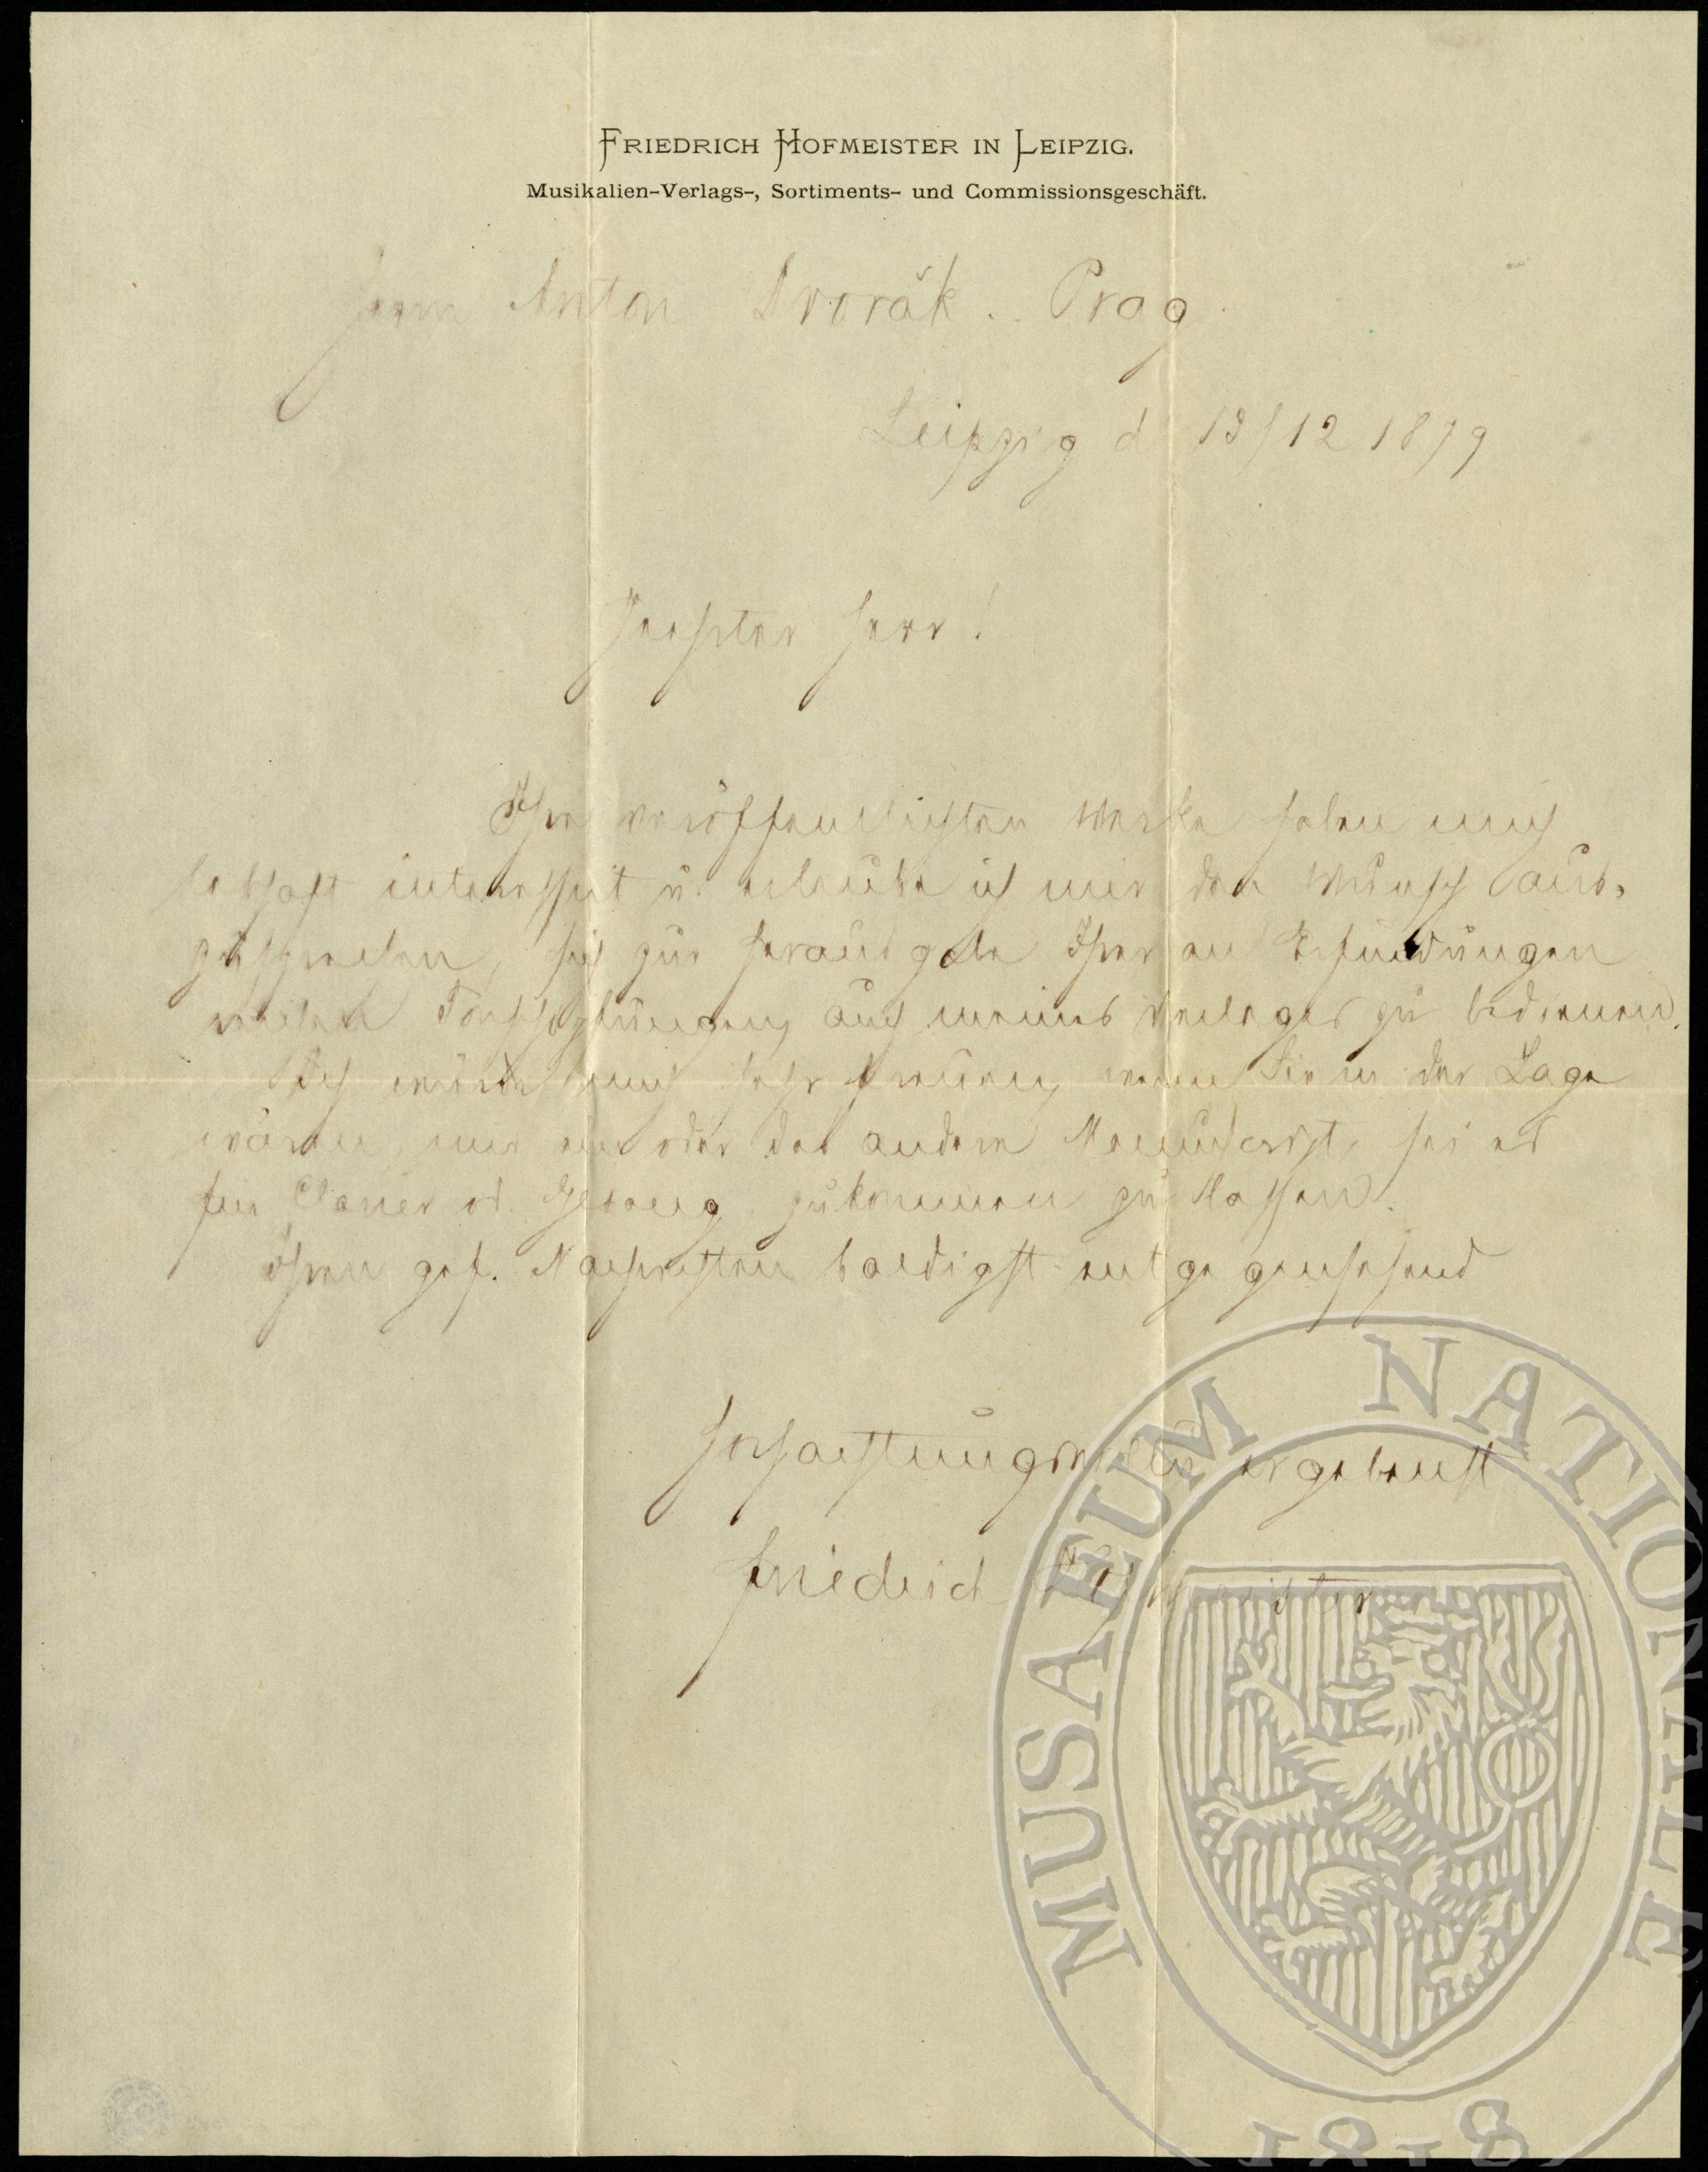 FRIEDRICH HOFMEISTER IN LEIPZIG.
Musikalien-Verlags-, Sortiments- und Commissionsgeschäft.
Herrn Anton Dvorák. Prag.
Leipzig d 13/12 1879
Geehrter Herr!
Ihre veröffentlichten Werke haben mich
lebhaft interessirt u. erlaube ich mir den Wunsch aus-
zusprechen, sich zur Herausgabe Ihrer an Erfindungen
reichen Tonschöpfungen auch meines Verlages zu bedienen.
Ich würde mich sehr freuen, wenn Sie in der Lage
wären, mir ein oder das andere Manuscript, sei es
für Clavier od. Gesang, zukommen zu lassen.
Ihren gef. Nachrichten baldigst entgegensehend
hochachtungsvoll ergebenst
Friedrich Hofmeister
MUSAEUM NATIONALE
1818